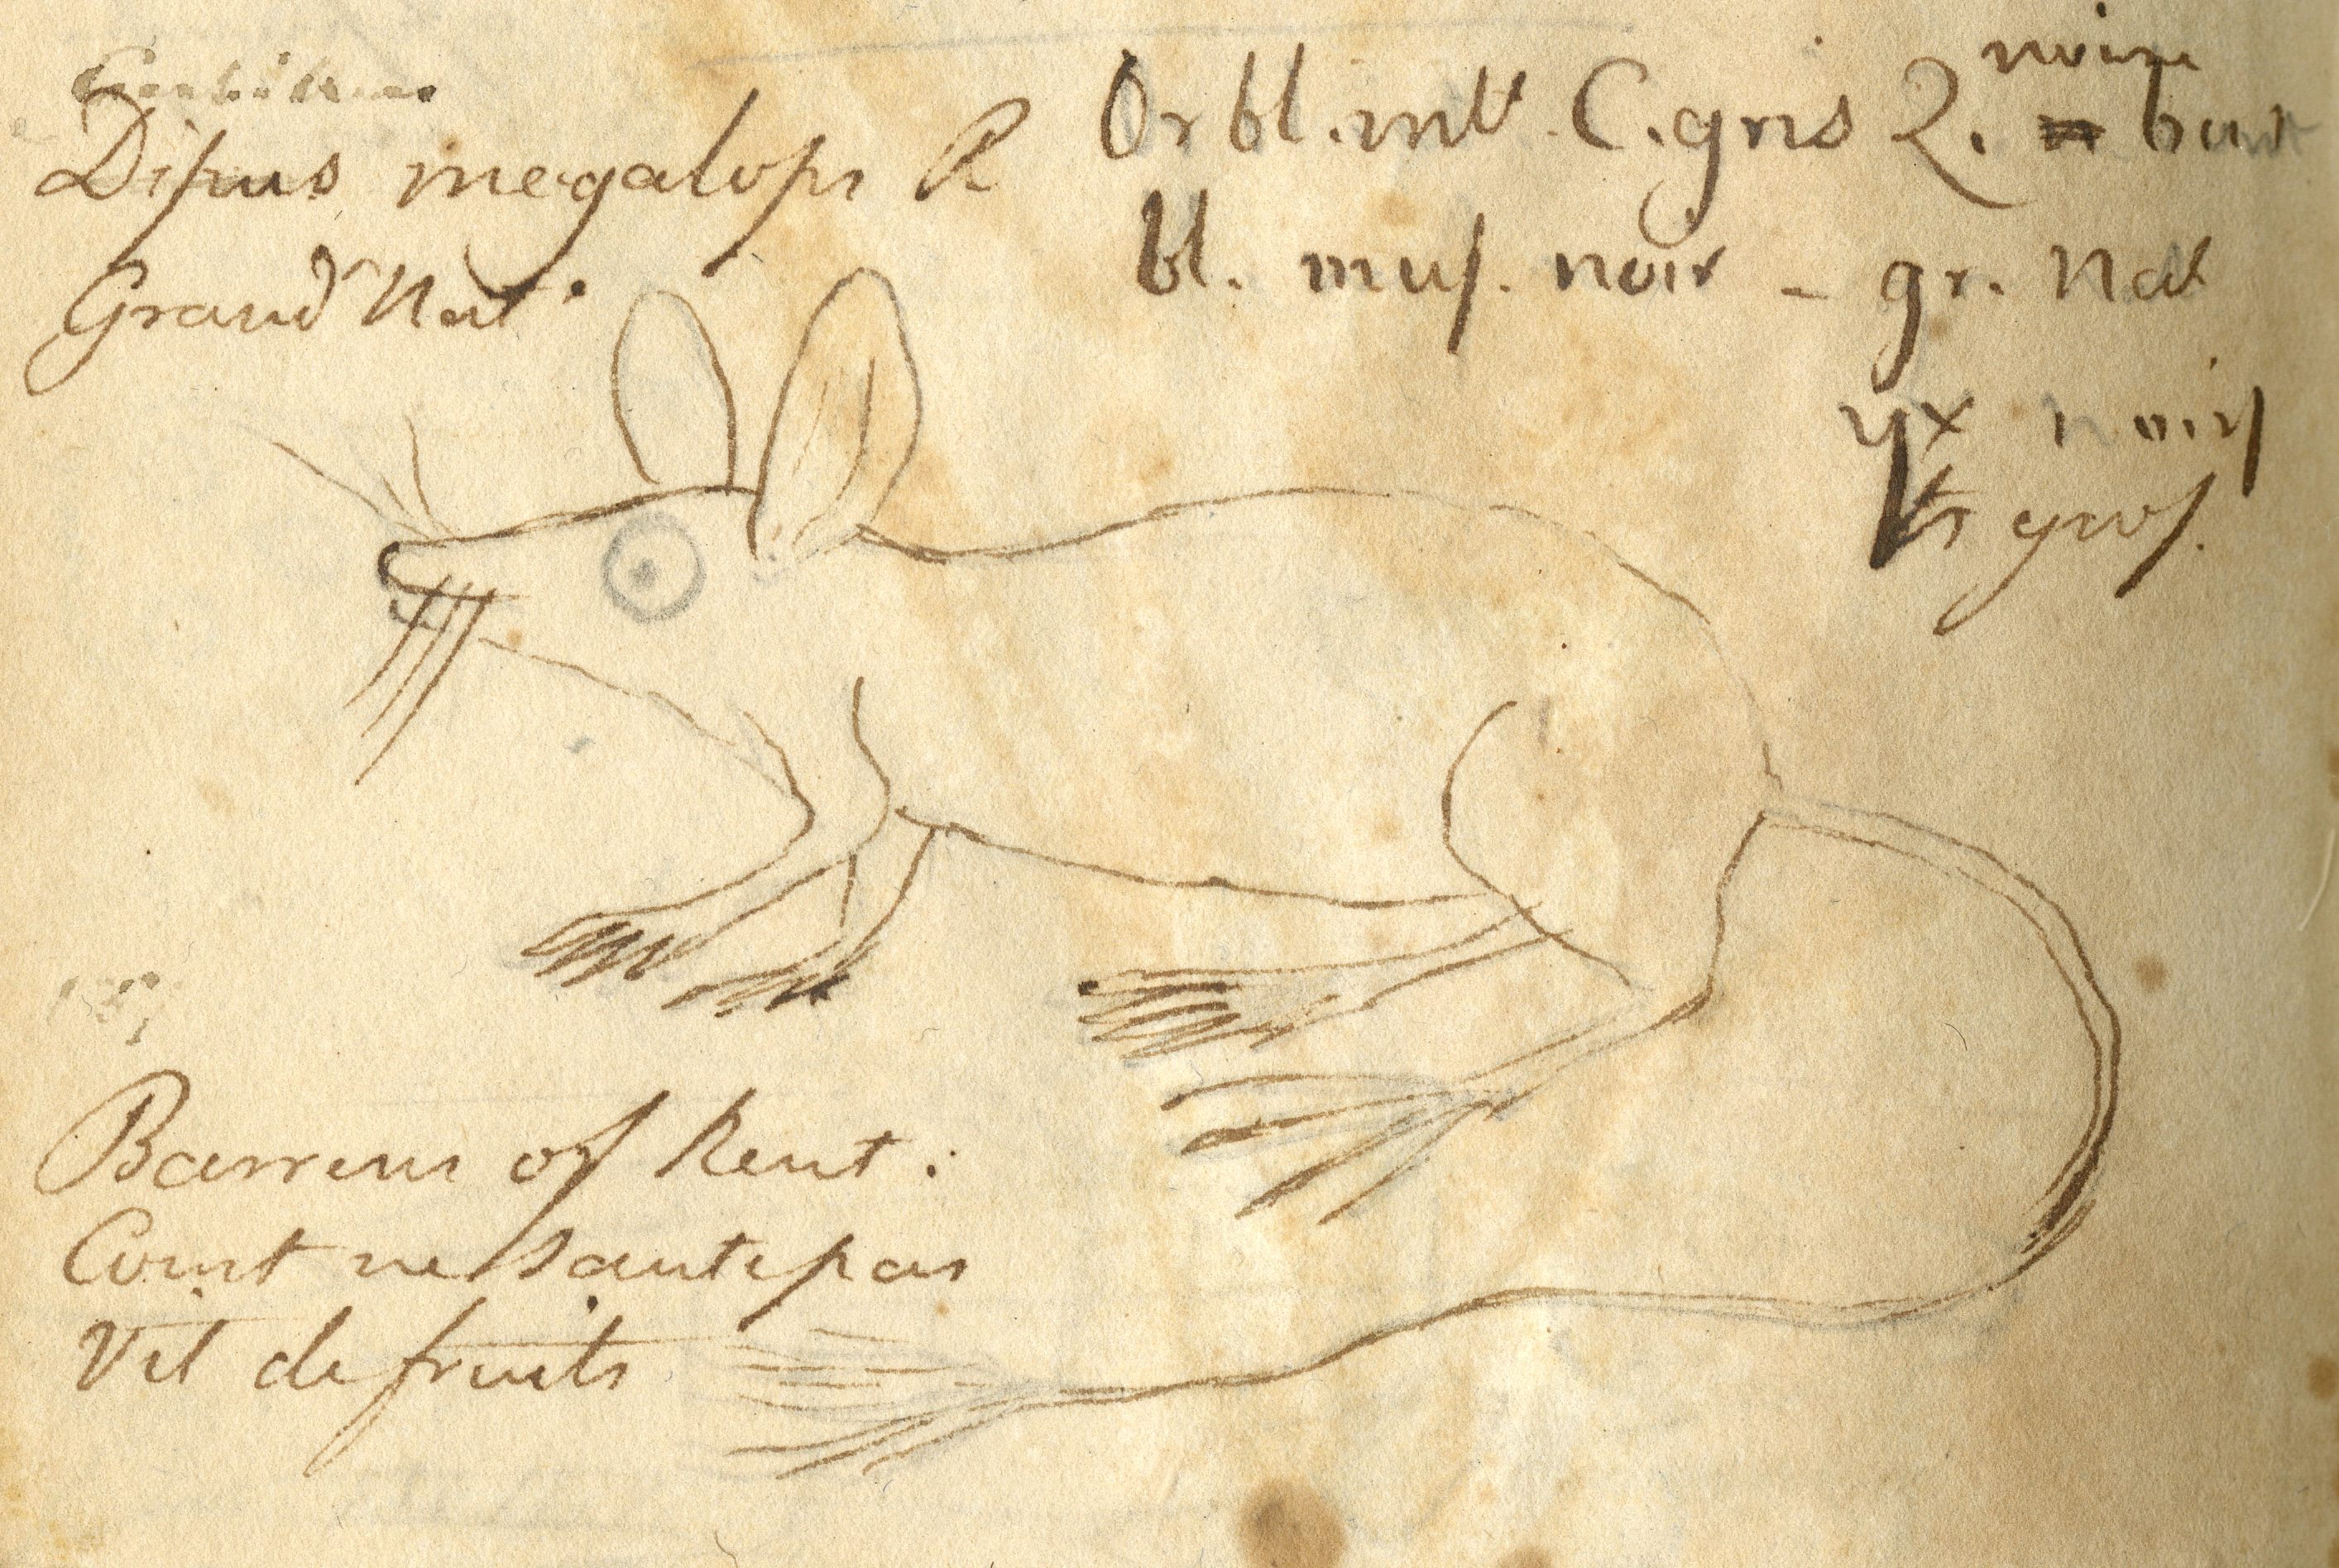 Dipus megalops R
Grand Nat.
Or bl. C. gris Q. noire
bl. mus. noir – gr. Nat
yx noirs
ts gros.
Barrens of Kent:
Court ne saute pas
Vit de fruits